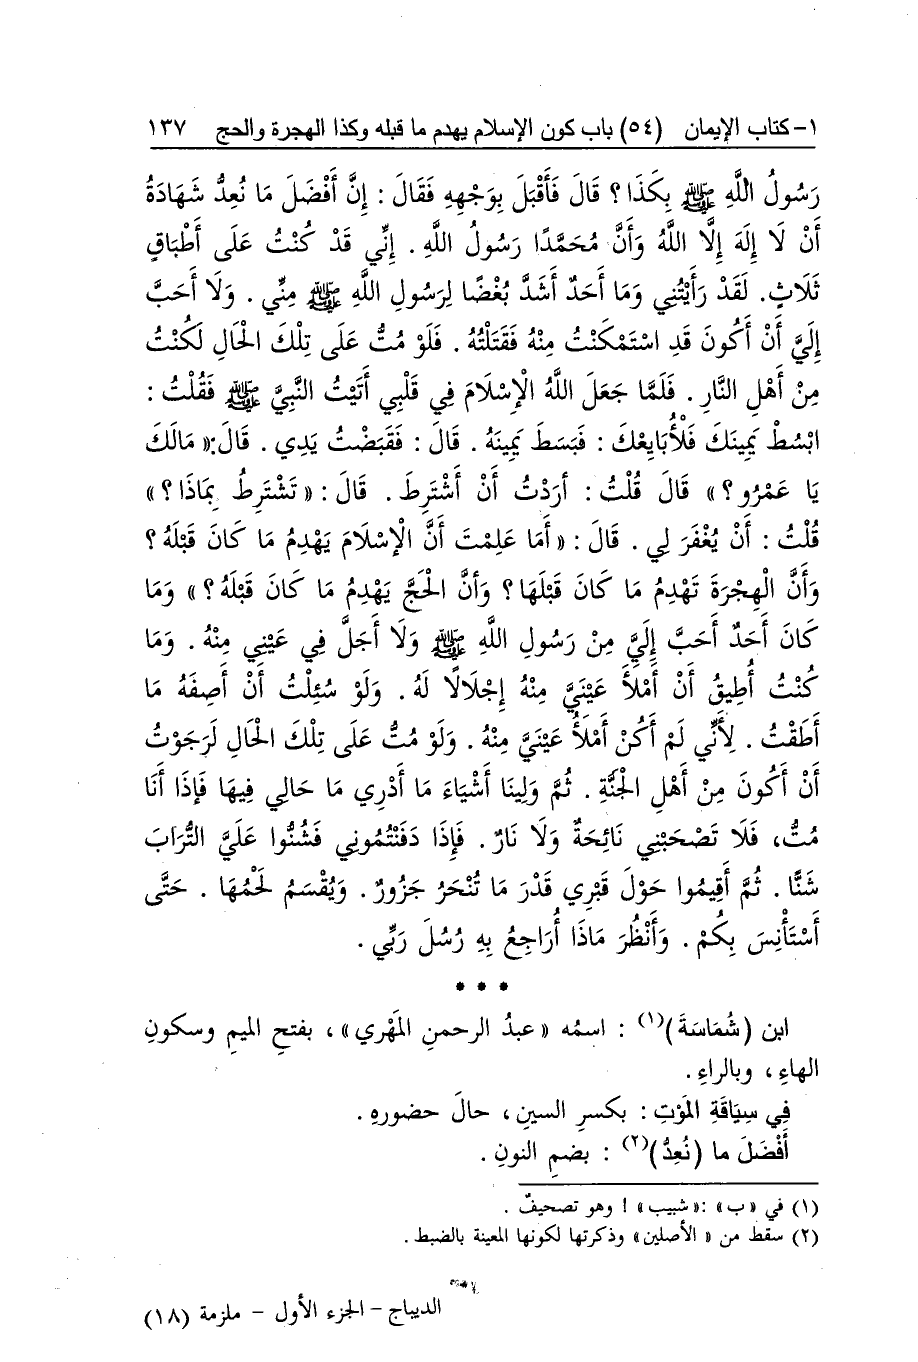 ١- كتاب الإيمان (٥٤) باب كون الإسلام يهدم ما قبله وكذا الهجرة والحج ١٣٧
رَسُولُ اللَّهِ ﷺ بِكَذَا ؟ قَالَ فَأَقْبَلَ بِوَجْهِهِ فَقَالَ : إِنَّ أَفْضَلَ مَا نُعِدُّ شَهَادَةُ
أَنْ لَا إِلَهَ إِلَّا اللَّهُ وَأَنَّ مُحَمَّدًا رَسُولُ اللَّهِ . إِنِّي قَدْ كُنْتُ عَلَى أَطْبَاقٍ
ثَلَاثٍ. لَقَدْ رَأَيْتُنِي وَمَا أَحَدٌ أَشَدَّ بُغْضًا لِرَسُولِ اللَّهِ ﷺ مِنِّي . وَلَا أَحَبَّ
إِلَيَّ أَنْ أَكُونَ قَدِ اسْتَمْكَنْتُ مِنْهُ فَقَتَلْتُهُ . فَلَوْ مُتُّ عَلَى تِلْكَ الْحَالِ لَكُنْتُ
مِنْ أَهْلِ النَّارِ . فَلَمَّا جَعَلَ اللَّهُ الْإِسْلَامَ فِي قَلْبِي أَتَيْتُ النَّبِيَّ ﷺ فَقُلْتُ :
ابْسُطْ يَمِينَكَ فَلْأُبَايِعْكَ : فَبَسَطَ يَمِينَهُ . قَالَ : فَقَبَضْتُ يَدِي . قَالَ :« مَالَكَ
يَا عَمْرُو ؟ » قَالَ قُلْتُ : أَرَدْتُ أَنْ أَشْتَرِطَ . قَالَ : « تَشْتَرِطُ بِمَاذَا ؟ »
قُلْتُ : أَنْ يُغْفَرَ لِي . قَالَ : « أَمَا عَلِمْتَ أَنَّ الْإِسْلَامَ يَهْدِمُ مَا كَانَ قَبْلَهُ ؟
وَأَنَّ الْهِجْرَةَ تَهْدِمُ مَا كَانَ قَبْلَهَا ؟ وَأَنَّ الْحَجَّ يَهْدِمُ مَا كَانَ قَبْلَهُ ؟ » وَمَا
كَانَ أَحَدٌ أَحَبَّ إِلَيَّ مِنْ رَسُولِ اللَّهِ ﷺ وَلَا أَجَلَّ فِي عَيْنِي مِنْهُ . وَمَا
كُنْتُ أُطِيقُ أَنْ أَمْلَأَ عَيْنَيَّ مِنْهُ إِجْلَالًا لَهُ . وَلَوْ سُئِلْتُ أَنْ أَصِفَهُ مَا
أَطَقْتُ . لِأَنِّي لَمْ أَكُنْ أَمْلَأُ عَيْنَيَّ مِنْهُ . وَلَوْ مُتُّ عَلَى تِلْكَ الْحَالِ لَرَجَوْتُ
أَنْ أَكُونَ مِنْ أَهْلِ الْجَنَّةِ . ثُمَّ وَلِينَا أَشْيَاءَ مَا أَدْرِي مَا حَالِي فِيهَا فَإِذَا أَنَا
مُتُّ، فَلَا تَصْحَبْنِي نَائِحَةٌ وَلَا نَارٌ . فَإِذَا دَفَنْتُمُونِي فَشُنُّوا عَلَيَّ التُّرَابَ
شَنًّا . ثُمَّ أَقِيمُوا حَوْلَ قَبْرِي قَدْرَ مَا تُنْحَرُ جَزُورٌ . وَيُقْسَمُ لَحْمُهَا . حَتَّى
أَسْتَأْنِسَ بِكُمْ . وَأَنْظُرَ مَاذَا أُرَاجِعُ بِهِ رُسُلَ رَبِّي .
* * *
ابن (شُمَاسَةَ)(١) : اسمُه « عبدُ الرحمنِ المَهْري » ، بفتحِ الميمِ وسكونِ
الهاءِ ، وبالراءِ .
فِي سِيَاقَةِ المَوْتِ : بكسرِ السينِ ، حالَ حضورهِ .
أَفْضَلَ ما (نُعِدُّ)(٢) : بضمِ النونِ .
(١) في « ب » :« شبيب » ! وهو تصحيفٌ .
(٢) سقط من « الأصلين » وذكرتها لكونها المعينة بالضبط .
الديباج - الجزء الأول - ملزمة (١٨)